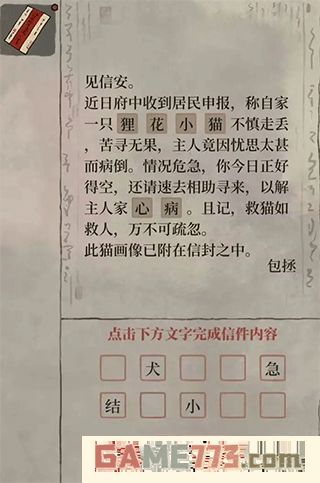 见信安。
近日府中收到居民申报，称自家
一只狸花小猫不慎走丢
，苦寻无果，主人竟因忧思太甚
而病倒。情况危急，你今日正好
得空，还请速去相助寻来，以解
主人家心病。且记，救猫如
救人，万不可疏忽。
此猫画像已附在信封之中。
包拯
点击下方文字完成信件内容
犬 急
结 小
GAME773.com